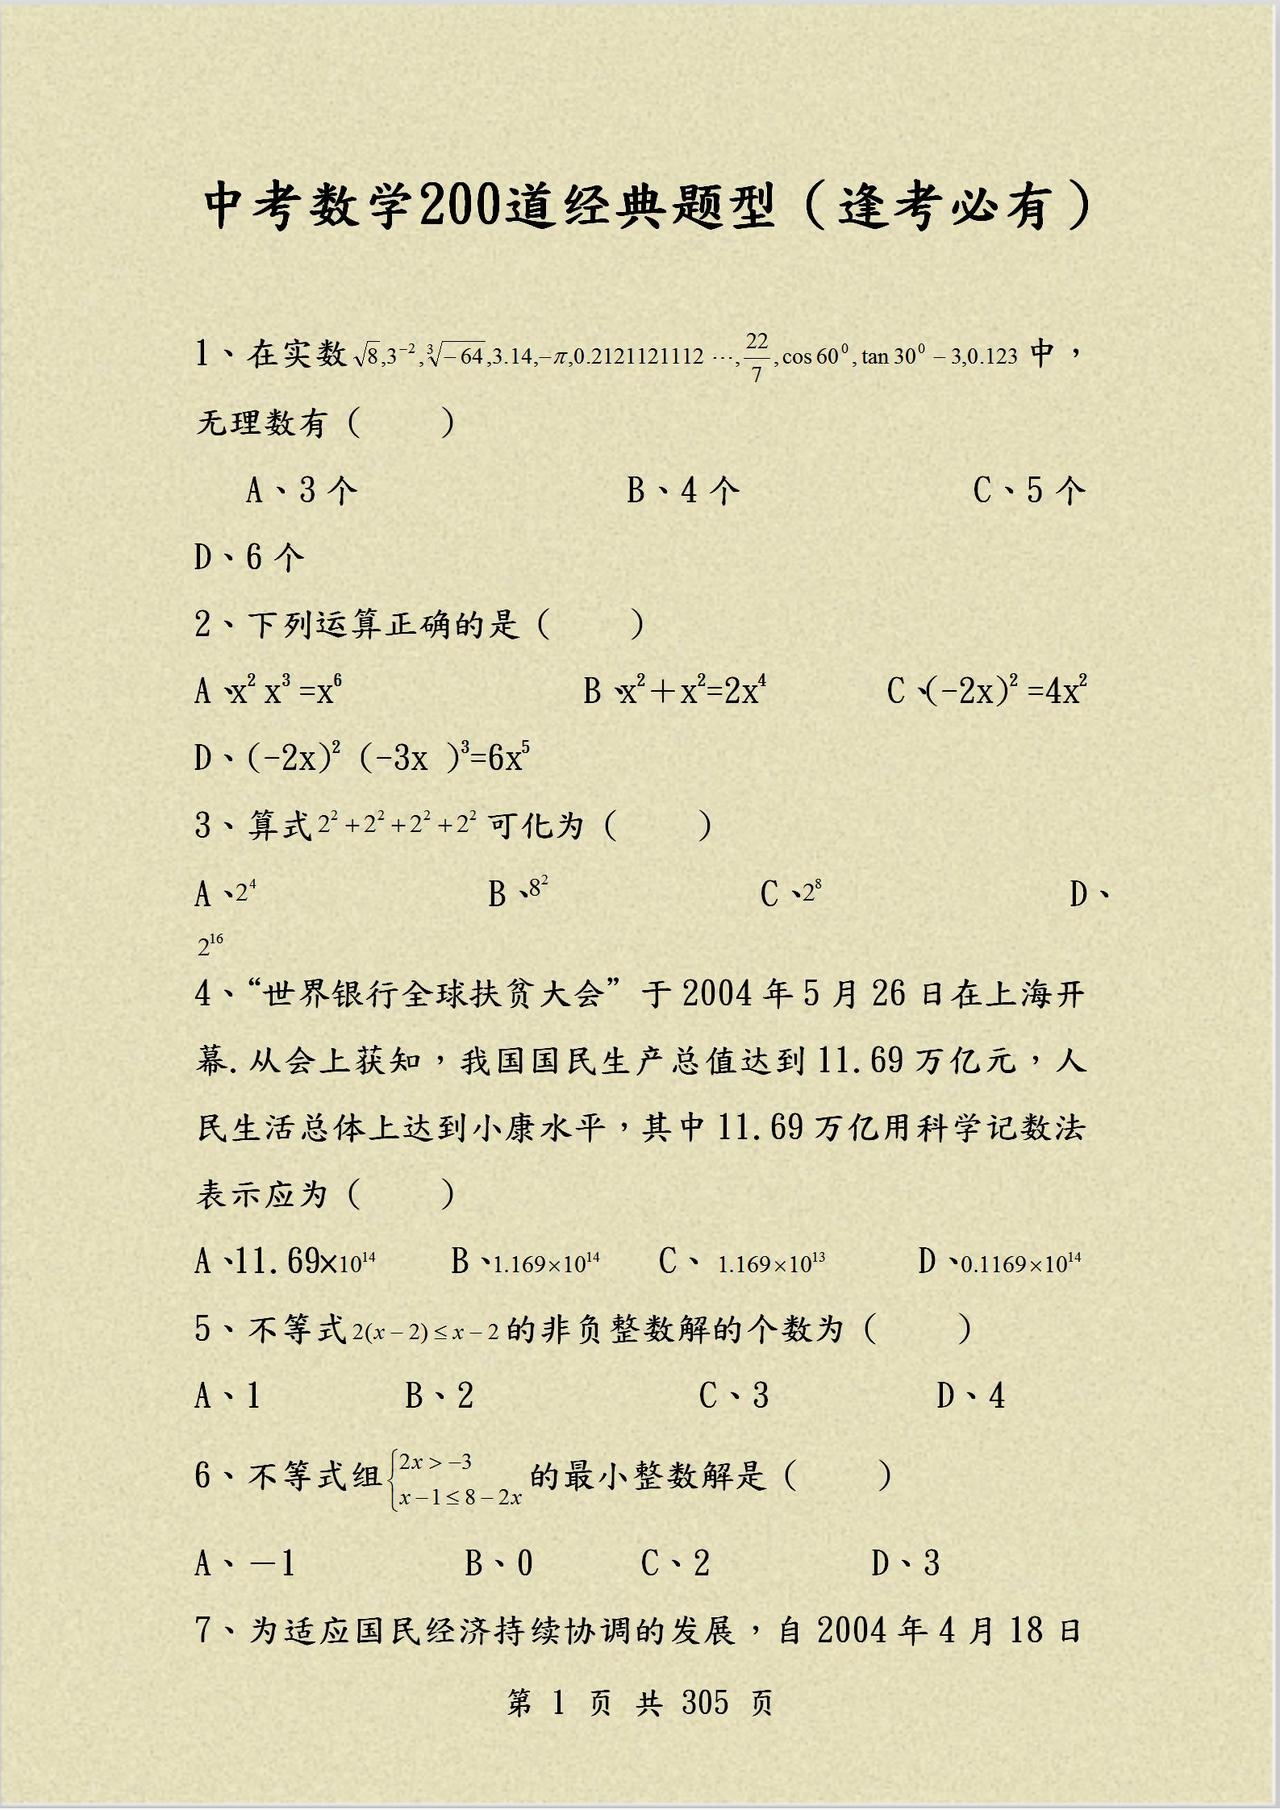 中考数学200道经典题型（逢考必有）
1、在实数√8,3⁻²,∛-64,3.14,-π,0.2121121112 …,22/7,cos60⁰,tan30⁰-3,0.123中，
无理数有（　　）
A、3个　B、4个　C、5个
D、6个
2、下列运算正确的是（　　）
A、x² x³ =x⁶　B、x²＋x²=2x⁴　C、(-2x)² =4x²
D、(-2x)² (-3x )³=6x⁵
3、算式2²+2²+2²+2²可化为（　　）
A、2⁴　B、8²　C、2⁸　D、
2¹⁶
4、“世界银行全球扶贫大会”于2004年5月26日在上海开
幕.从会上获知，我国国民生产总值达到11.69万亿元，人
民生活总体上达到小康水平，其中11.69万亿用科学记数法
表示应为（　　）
A、11.69×10¹⁴　B、1.169×10¹⁴　C、1.169×10¹³　D、0.1169×10¹⁴
5、不等式2(x-2)≤x-2的非负整数解的个数为（　　）
A、1　B、2　C、3　D、4
6、不等式组{2x>-3 x-1≤8-2x 的最小整数解是（　　）
A、－1　B、0　C、2　D、3
7、为适应国民经济持续协调的发展，自2004年4月18日
第 1 页 共 305 页